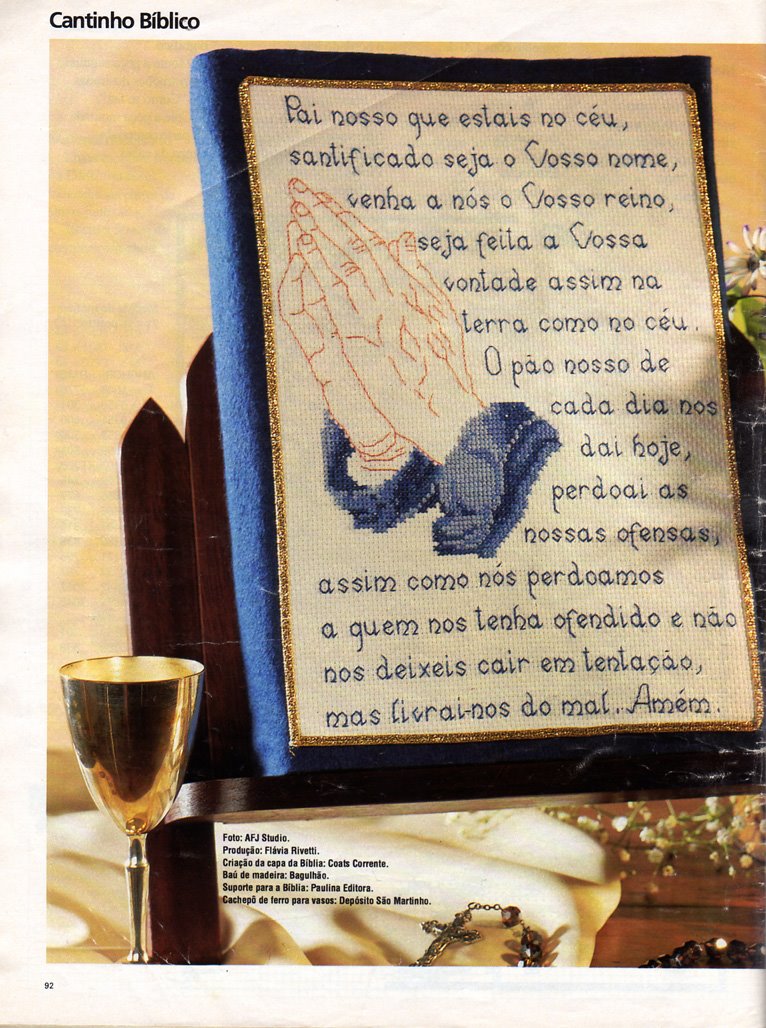 Cantinho Bíblico
Pai nosso que estais no céu,
santificado seja o Vosso nome,
venha a nós o Vosso reino,
seja feita a Vossa
vontade assim na
terra como no céu.
O pão nosso de
cada dia nos
dai hoje,
perdoai as
nossas ofensas,
assim como nós perdoamos
a quem nos tenha ofendido e não
nos deixeis cair em tentação,
mas livrai-nos do mal. Amém.
Foto: AFJ Studio.
Produção: Flávia Rivetti.
Criação da capa da Bíblia: Coats Corrente.
Baú de madeira: Bagulhão.
Suporte para a Bíblia: Paulina Editora.
Cachepô de ferro para vasos: Depósito São Martinho.
92